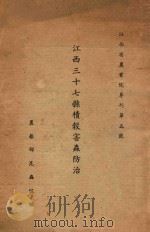 江西省農業院專刊第五號
江西三十七縣積穀害蟲防治
農藝部昆蟲組